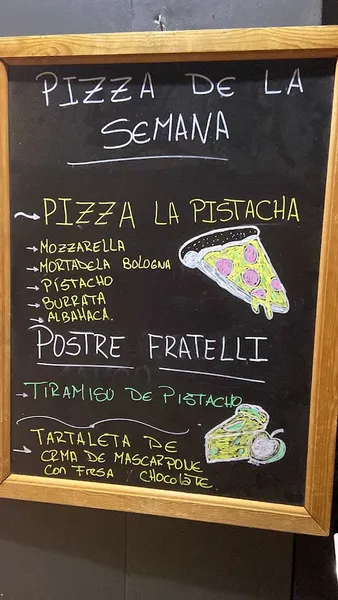 PIZZA DE LA
SEMANA
PIZZA LA PISTACHA
MOZZARELLA
MORTADELA BOLOGNA
PISTACHO
BURRATA
ALBAHACA.
POSTRE FRATELLI
TIRAMISU DE PISTACHO
TARTALETA DE
CRMA DE MASCARPONE
CON FRESA Y CHOCOLATE.